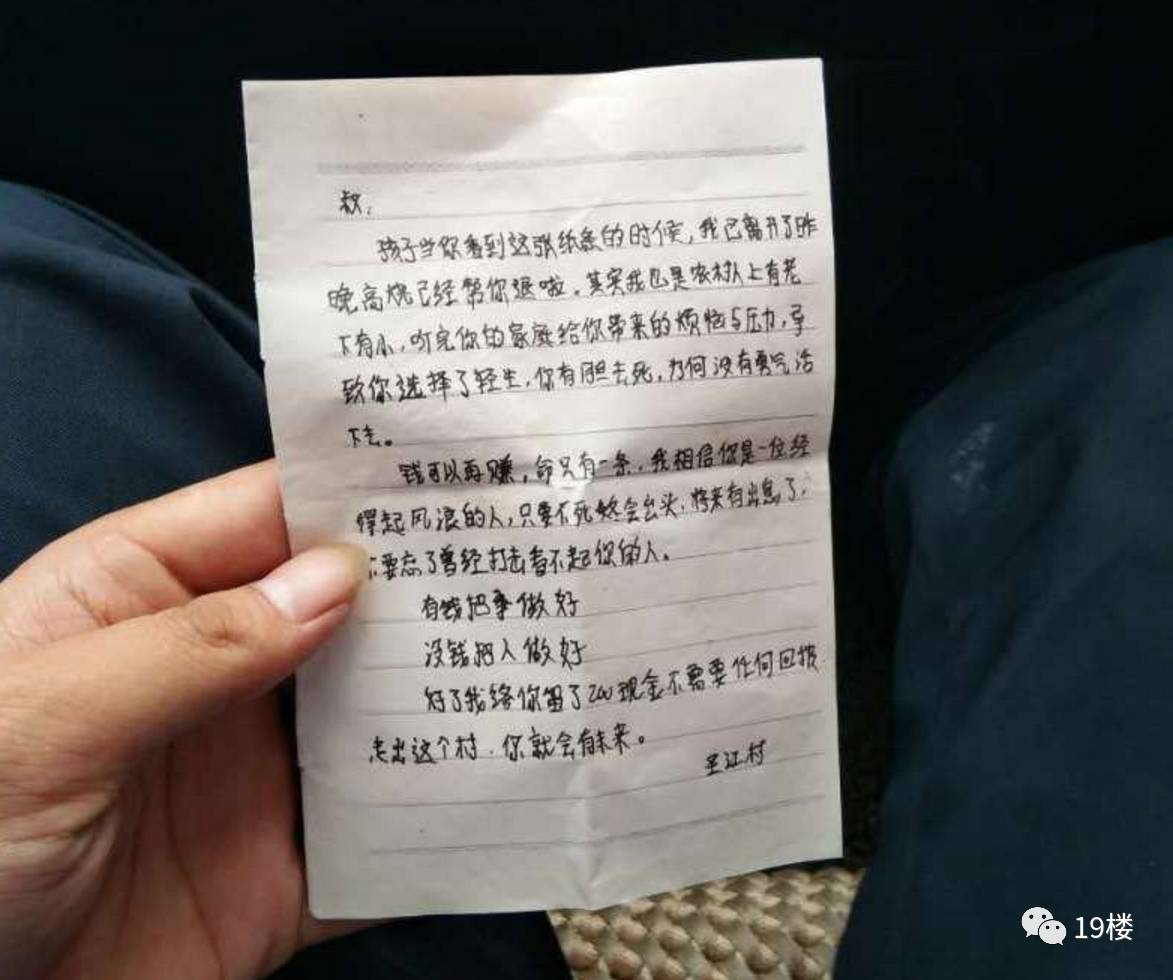 叔:
孩子当你看到这张纸条的时候,我已离开了昨
晚高烧已经帮你退啦。其实我也是农村人上有老
下有小,听完你的家庭给你带来的烦恼与压力,导
致你选择了轻生,你有胆去死,为何没有勇气活
下去。
钱可以再赚,命只有一条,我相信你是一位经
得起风浪的人,只要不死终会出头,将来有出息了,
不要忘了曾经打击看不起你的人。
有钱把事做好
没钱把人做好
好了我给你留了200现金不需要任何回报
走出这个村,你就会有未来。
江村
19楼